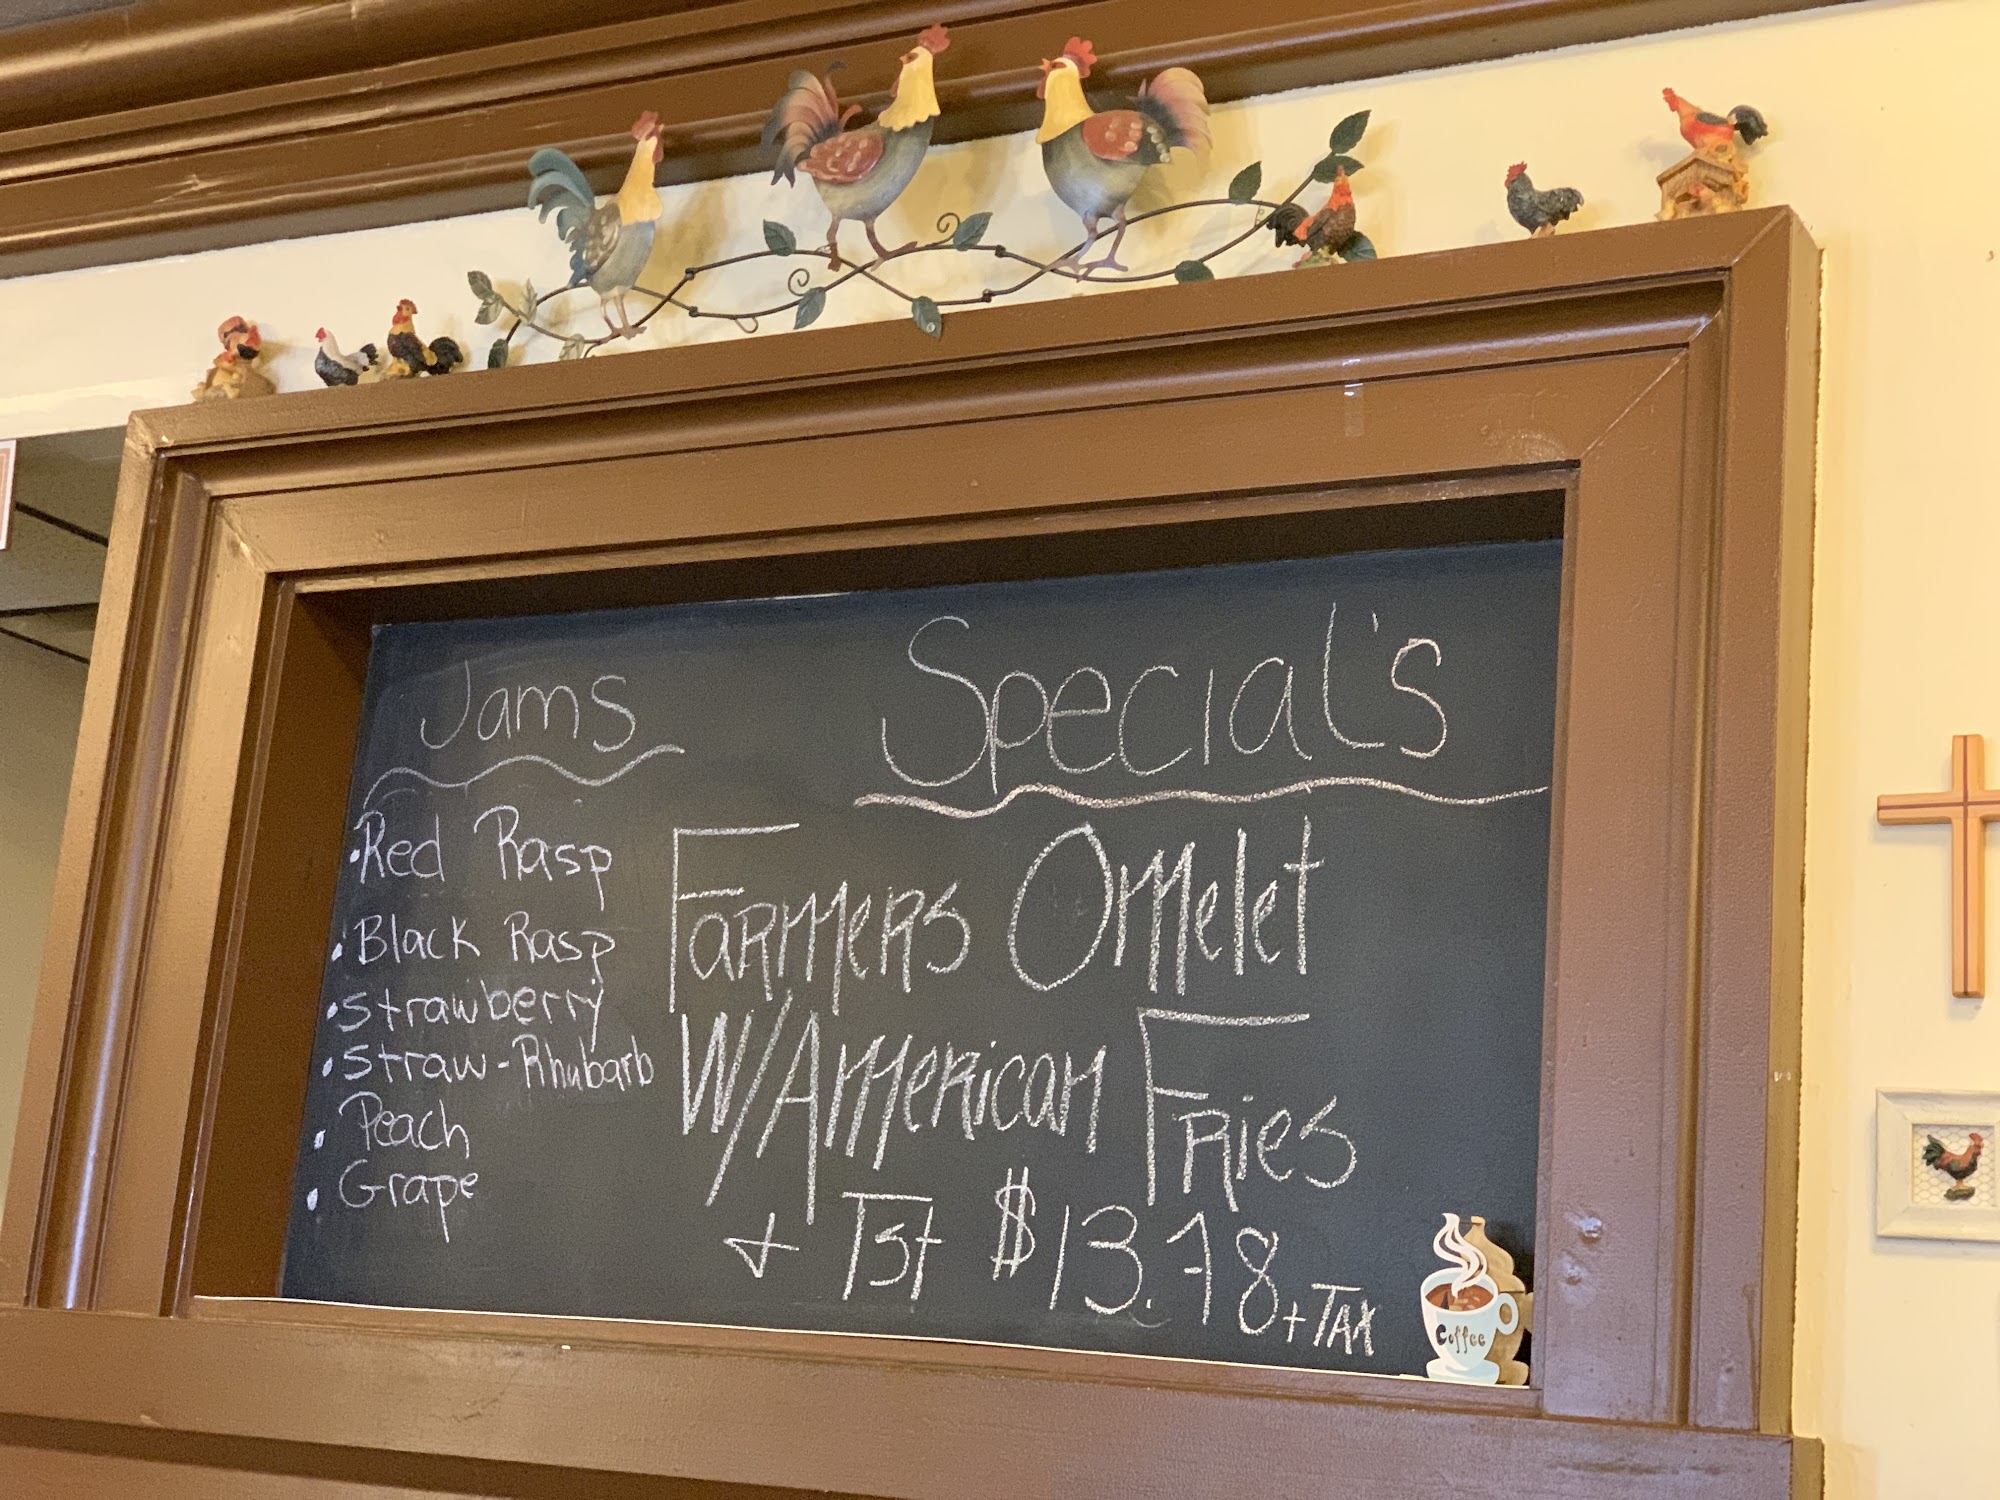 Jams
• Red Rasp
• Black Rasp
• Strawberry
• Straw-Rhubarb
• Peach
• Grape
Special's
Farmers Omelet
W/American Fries
+ Tst $13.78 + Tax
Coffee